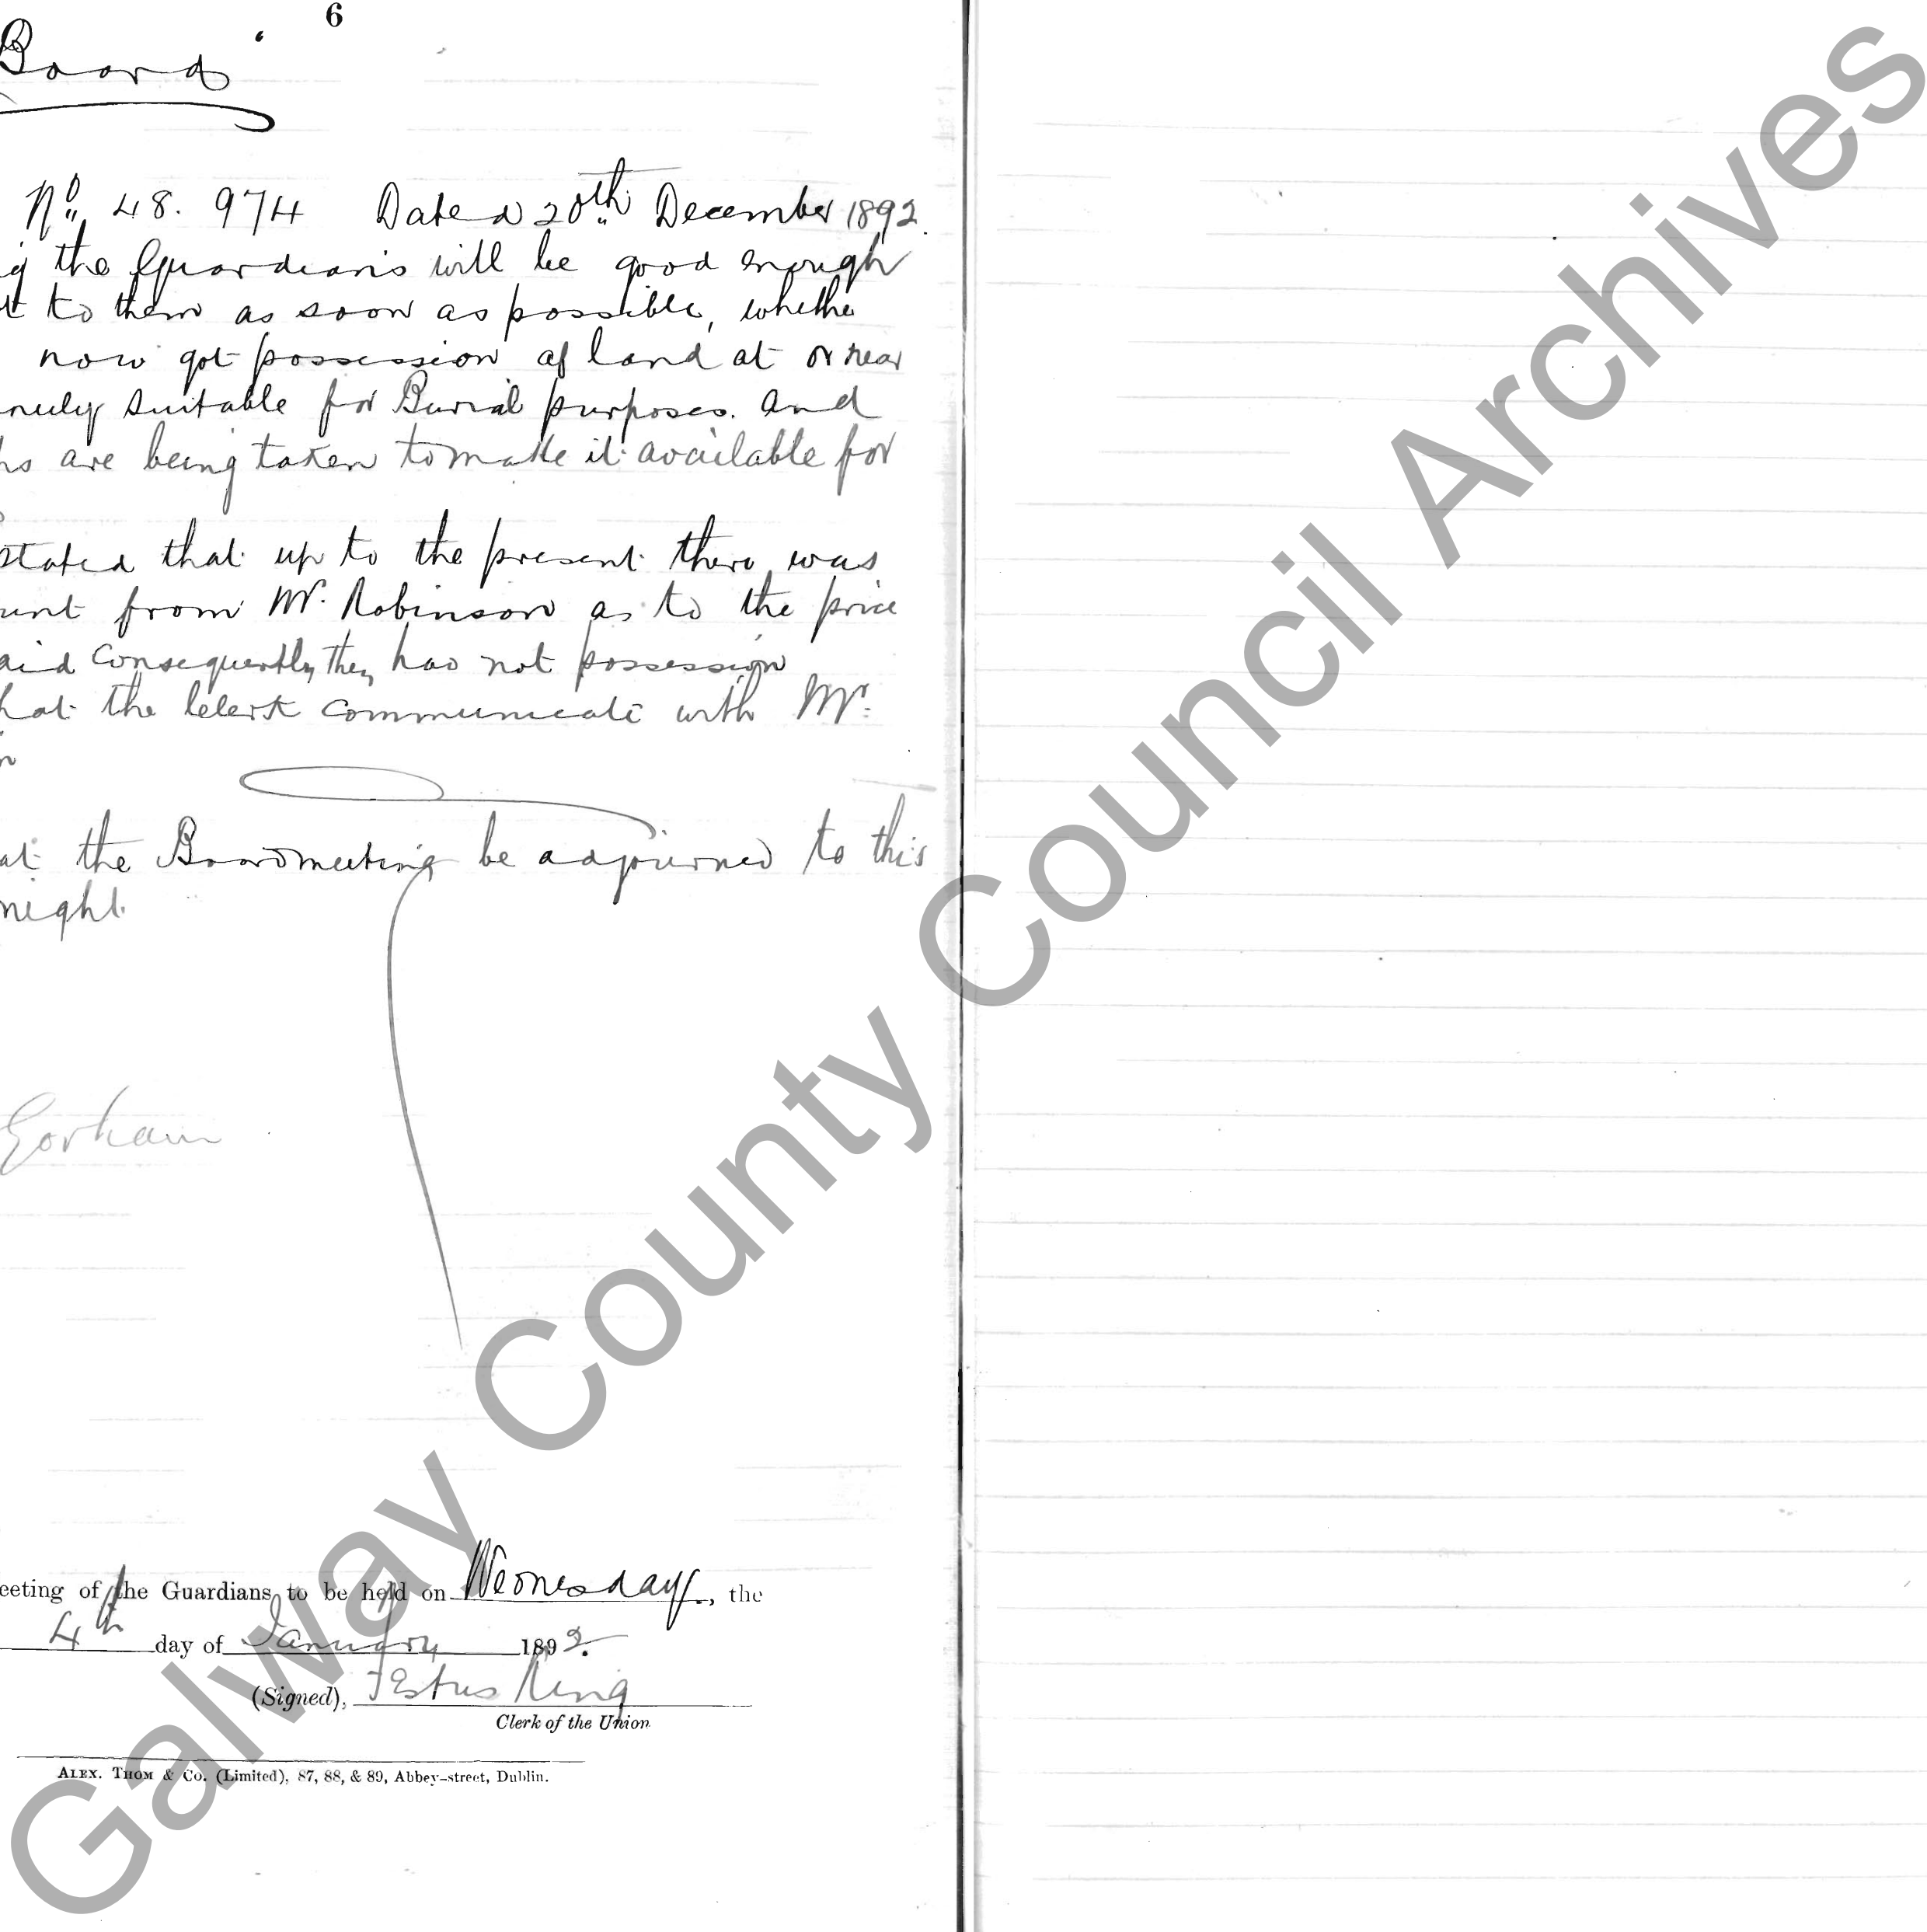 6
Board
No. 48.974 Dated 20th December 1892.
g the Guardians will be good enough
t to them as soon as possible, whethe
now got possession of land at or near
suitable for Burial purposes. and
ps are being taken to make it available for
stated that up to the present there was
unt from Mr. Robinson as to the price
aid Consequently they had not possession
hat the Clerk communicate with Mr.
n
at the Boardmeeting be adjourned to this
night.
Gorham
eeting of the Guardians to be held on Wednesday, the
4th day of January 1892.
(Signed), Festus King
Clerk of the Union
ALEX. THOM & Co. (Limited), 87, 88, & 89, Abbey-street, Dublin.
Galway County Council Archives